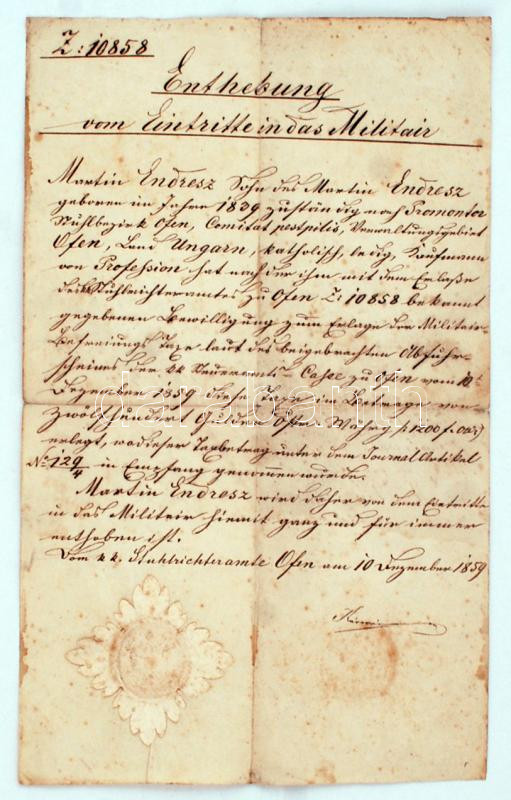 Z: 10858
Enthebung
vom Eintritte in das Militair
Martin Endresz Sohn des Martin Endresz
geboren im Jahre 1839 zuständig nach Promontor
Stuhlbezirk Ofen, Comitat pestpilis, Verwaltungsgebiet
Ofen, Land Ungarn, katholisch, ledig, Kaufmann
von Profession hat nach der ihm mit dem Erlaße
des Stuhlrichteramtes zu Ofen Z: 10858 bekannt
gegebenen Bewilligung zum Erlage der Militair
Befreiungs Taxe laut des beigebrachten Abfuhr-
scheines der kk Steueramts Casse zu Ofen vom 10t
Dezember 1859 diese Taxe im Betrage von
Zwölfhundert Gulden Öster. Währg f. 1200 f.
erlegt, wo dieser Taxbetrag unter dem Journal Artikel
No 129/4 in Empfang genommen wurde.
Martin Endresz wird daher von dem Eintritte
in das Militair hiemit ganz und für immer
enthoben ist.
Vom kk. Stuhlrichteramte Ofen am 10 Dezember 1859
darabanth